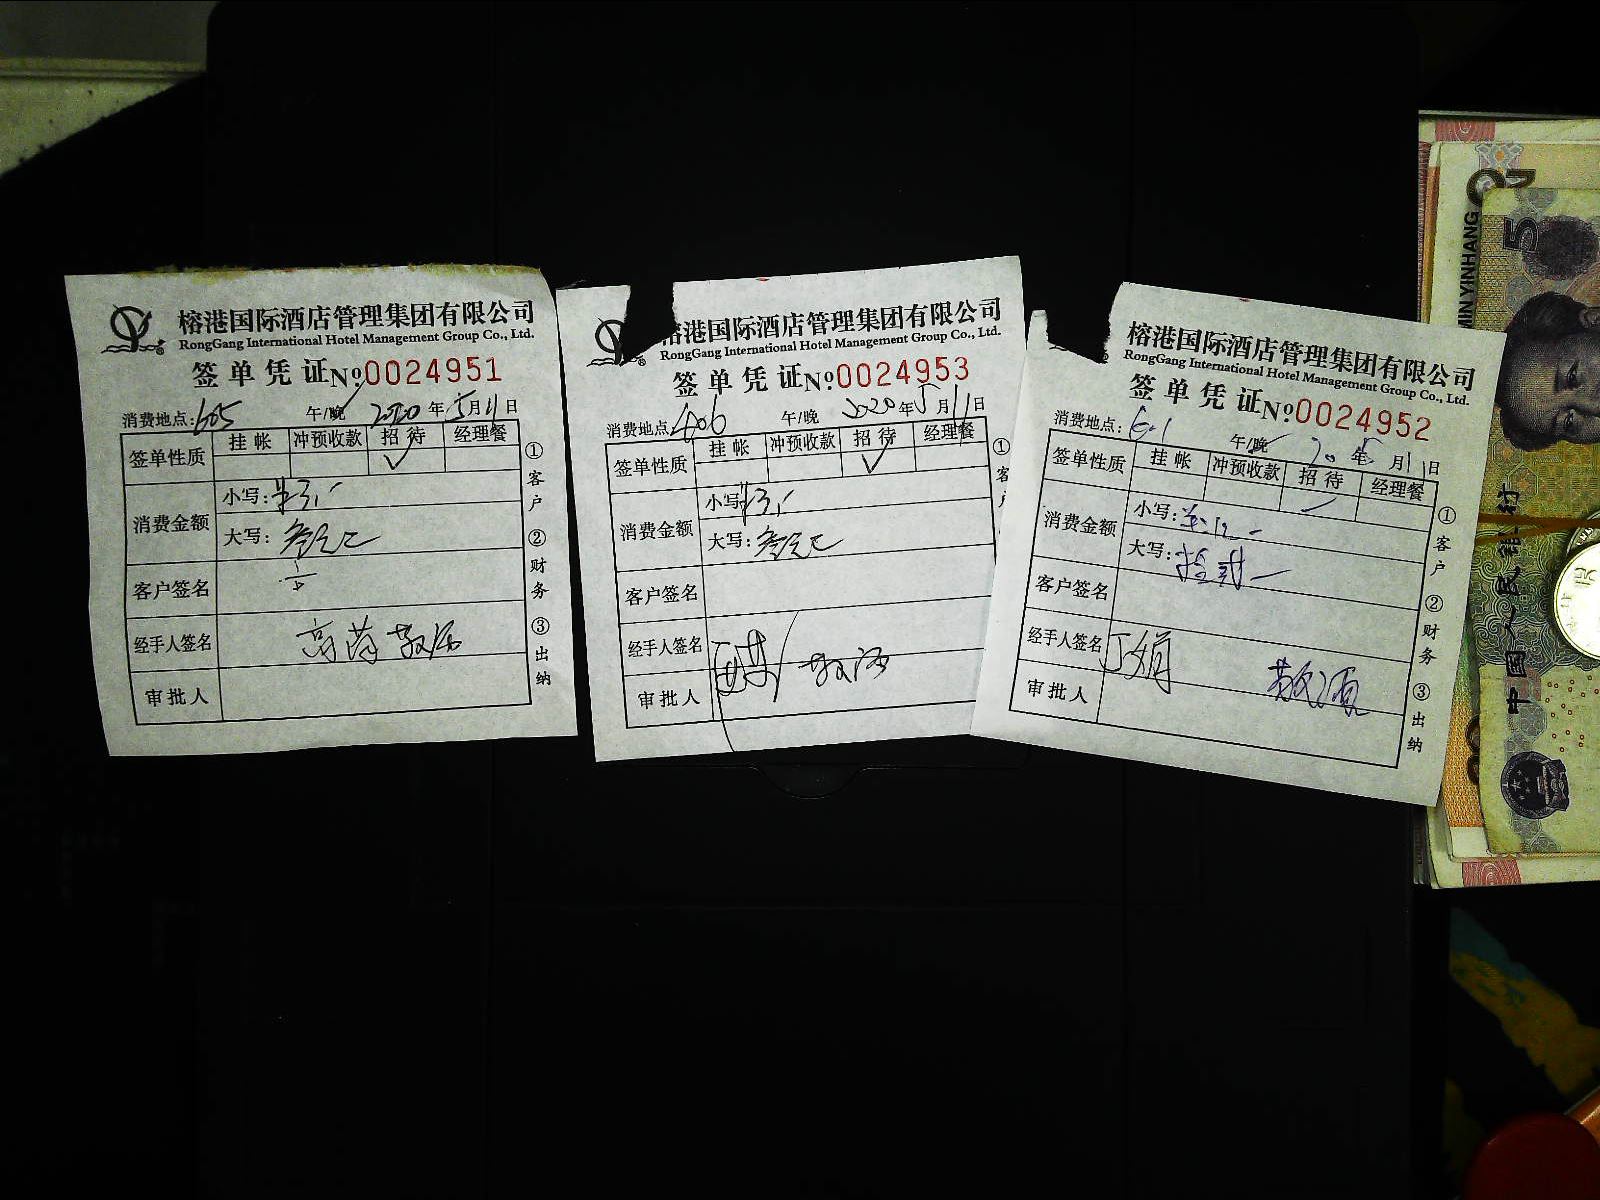 榕港国际酒店管理集团有限公司
RongGang International Hotel Management Group Co., Ltd.
签单凭证 No 0024951
消费地点: 605 午/晚 2020年5月11日
签单性质 挂帐 冲预收款 招待 经理餐
消费金额 小写:
大写:
客户签名
经手人签名 敬酒
审批人
①客户 ②财务 ③出纳
榕港国际酒店管理集团有限公司
RongGang International Hotel Management Group Co., Ltd.
签单凭证 No 0024953
消费地点: 606 午/晚 2020年5月11日
签单性质 挂帐 冲预收款 招待 经理餐
消费金额 小写:
大写:
客户签名
经手人签名 敬酒
审批人
①客户
榕港国际酒店管理集团有限公司
RongGang International Hotel Management Group Co., Ltd.
签单凭证 No 0024952
消费地点: 午/晚 20年5月11日
签单性质 挂帐 冲预收款 招待 经理餐
消费金额 小写:
大写:
客户签名
经手人签名 敬酒
审批人
①客户 ②财务 ③出纳
MIN YINHANG
5
中国人民银行